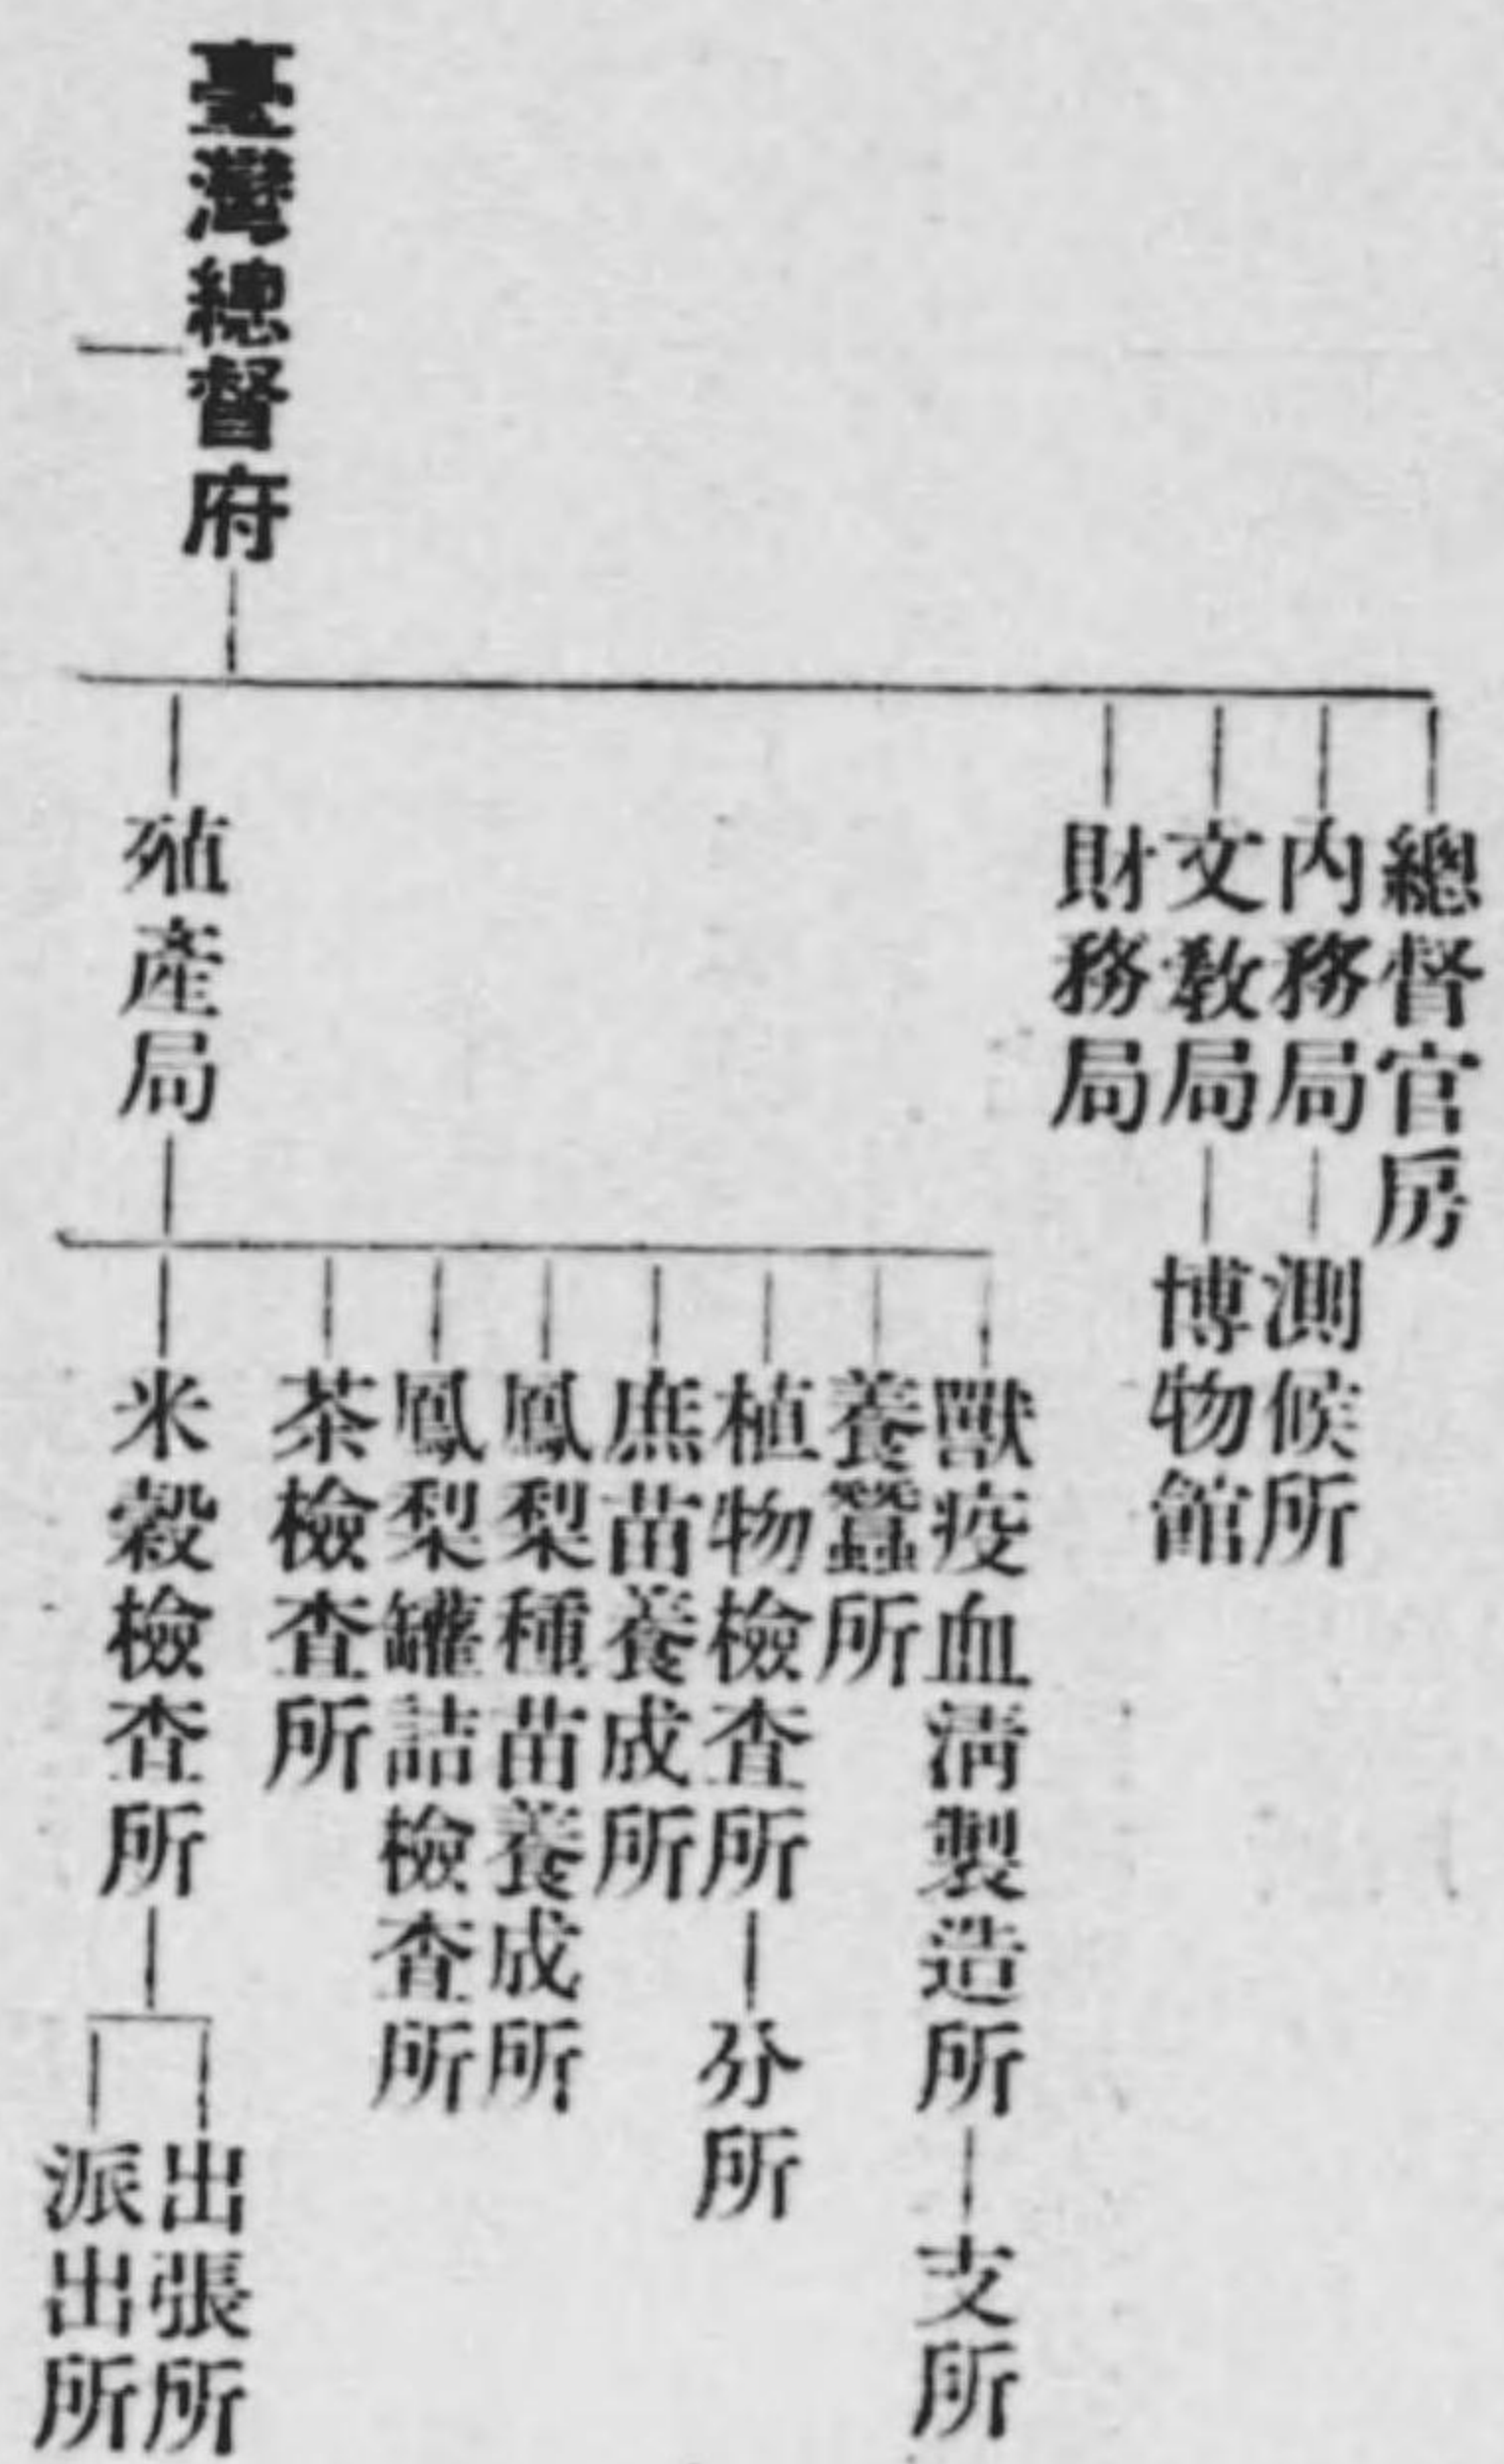 臺灣總督府
總督官房
內務局
測候所
文教局
博物館
財務局
殖產局
獸疫血淸製造所
支所
養蠶所
植物檢查所
分所
蔗苗養成所
鳳梨種苗養成所
鳳梨罐詰檢查所
茶檢查所
米穀檢查所
出張所
派出所